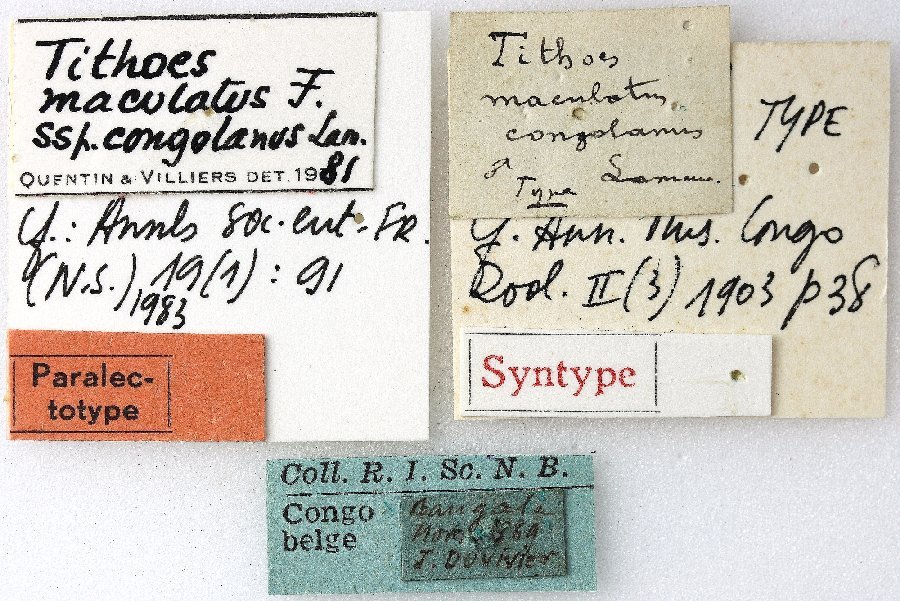 Tithoes
maculatus F.
ssp. congolanus Lam.
QUENTIN & VILLIERS DET. 1981
Cf.: Annls soc. ent. FR.
(N.S.) 19(1) : 91
1983
Paralec-
totype
Tithoes
maculatus
congolanus
♂ Type Lameere
TYPE
Cf. Ann. Mus. Congo
Zool. II (3) 1903 p 38
Syntype
Coll. R. I. Sc. N. B.
Congo
belge
Bangala
J. Duvivier